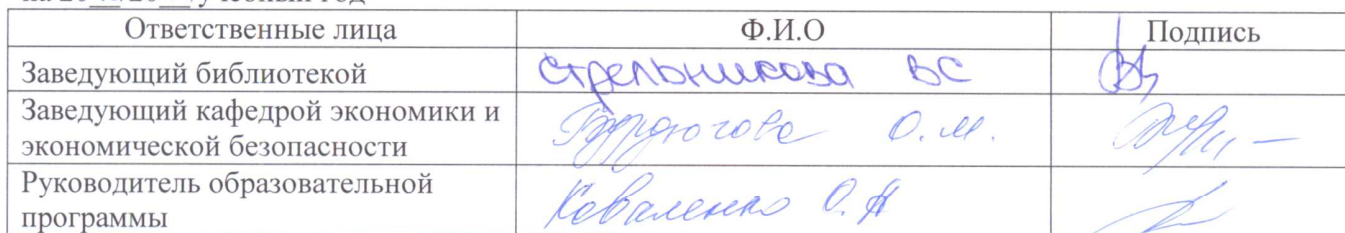 Ответственные лица Ф.И.О Подпись
Заведующий библиотекой Стрельникова ВС
Заведующий кафедрой экономики и
экономической безопасности Бурдюгова О.М.
Руководитель образовательной
программы Коваленко О.А